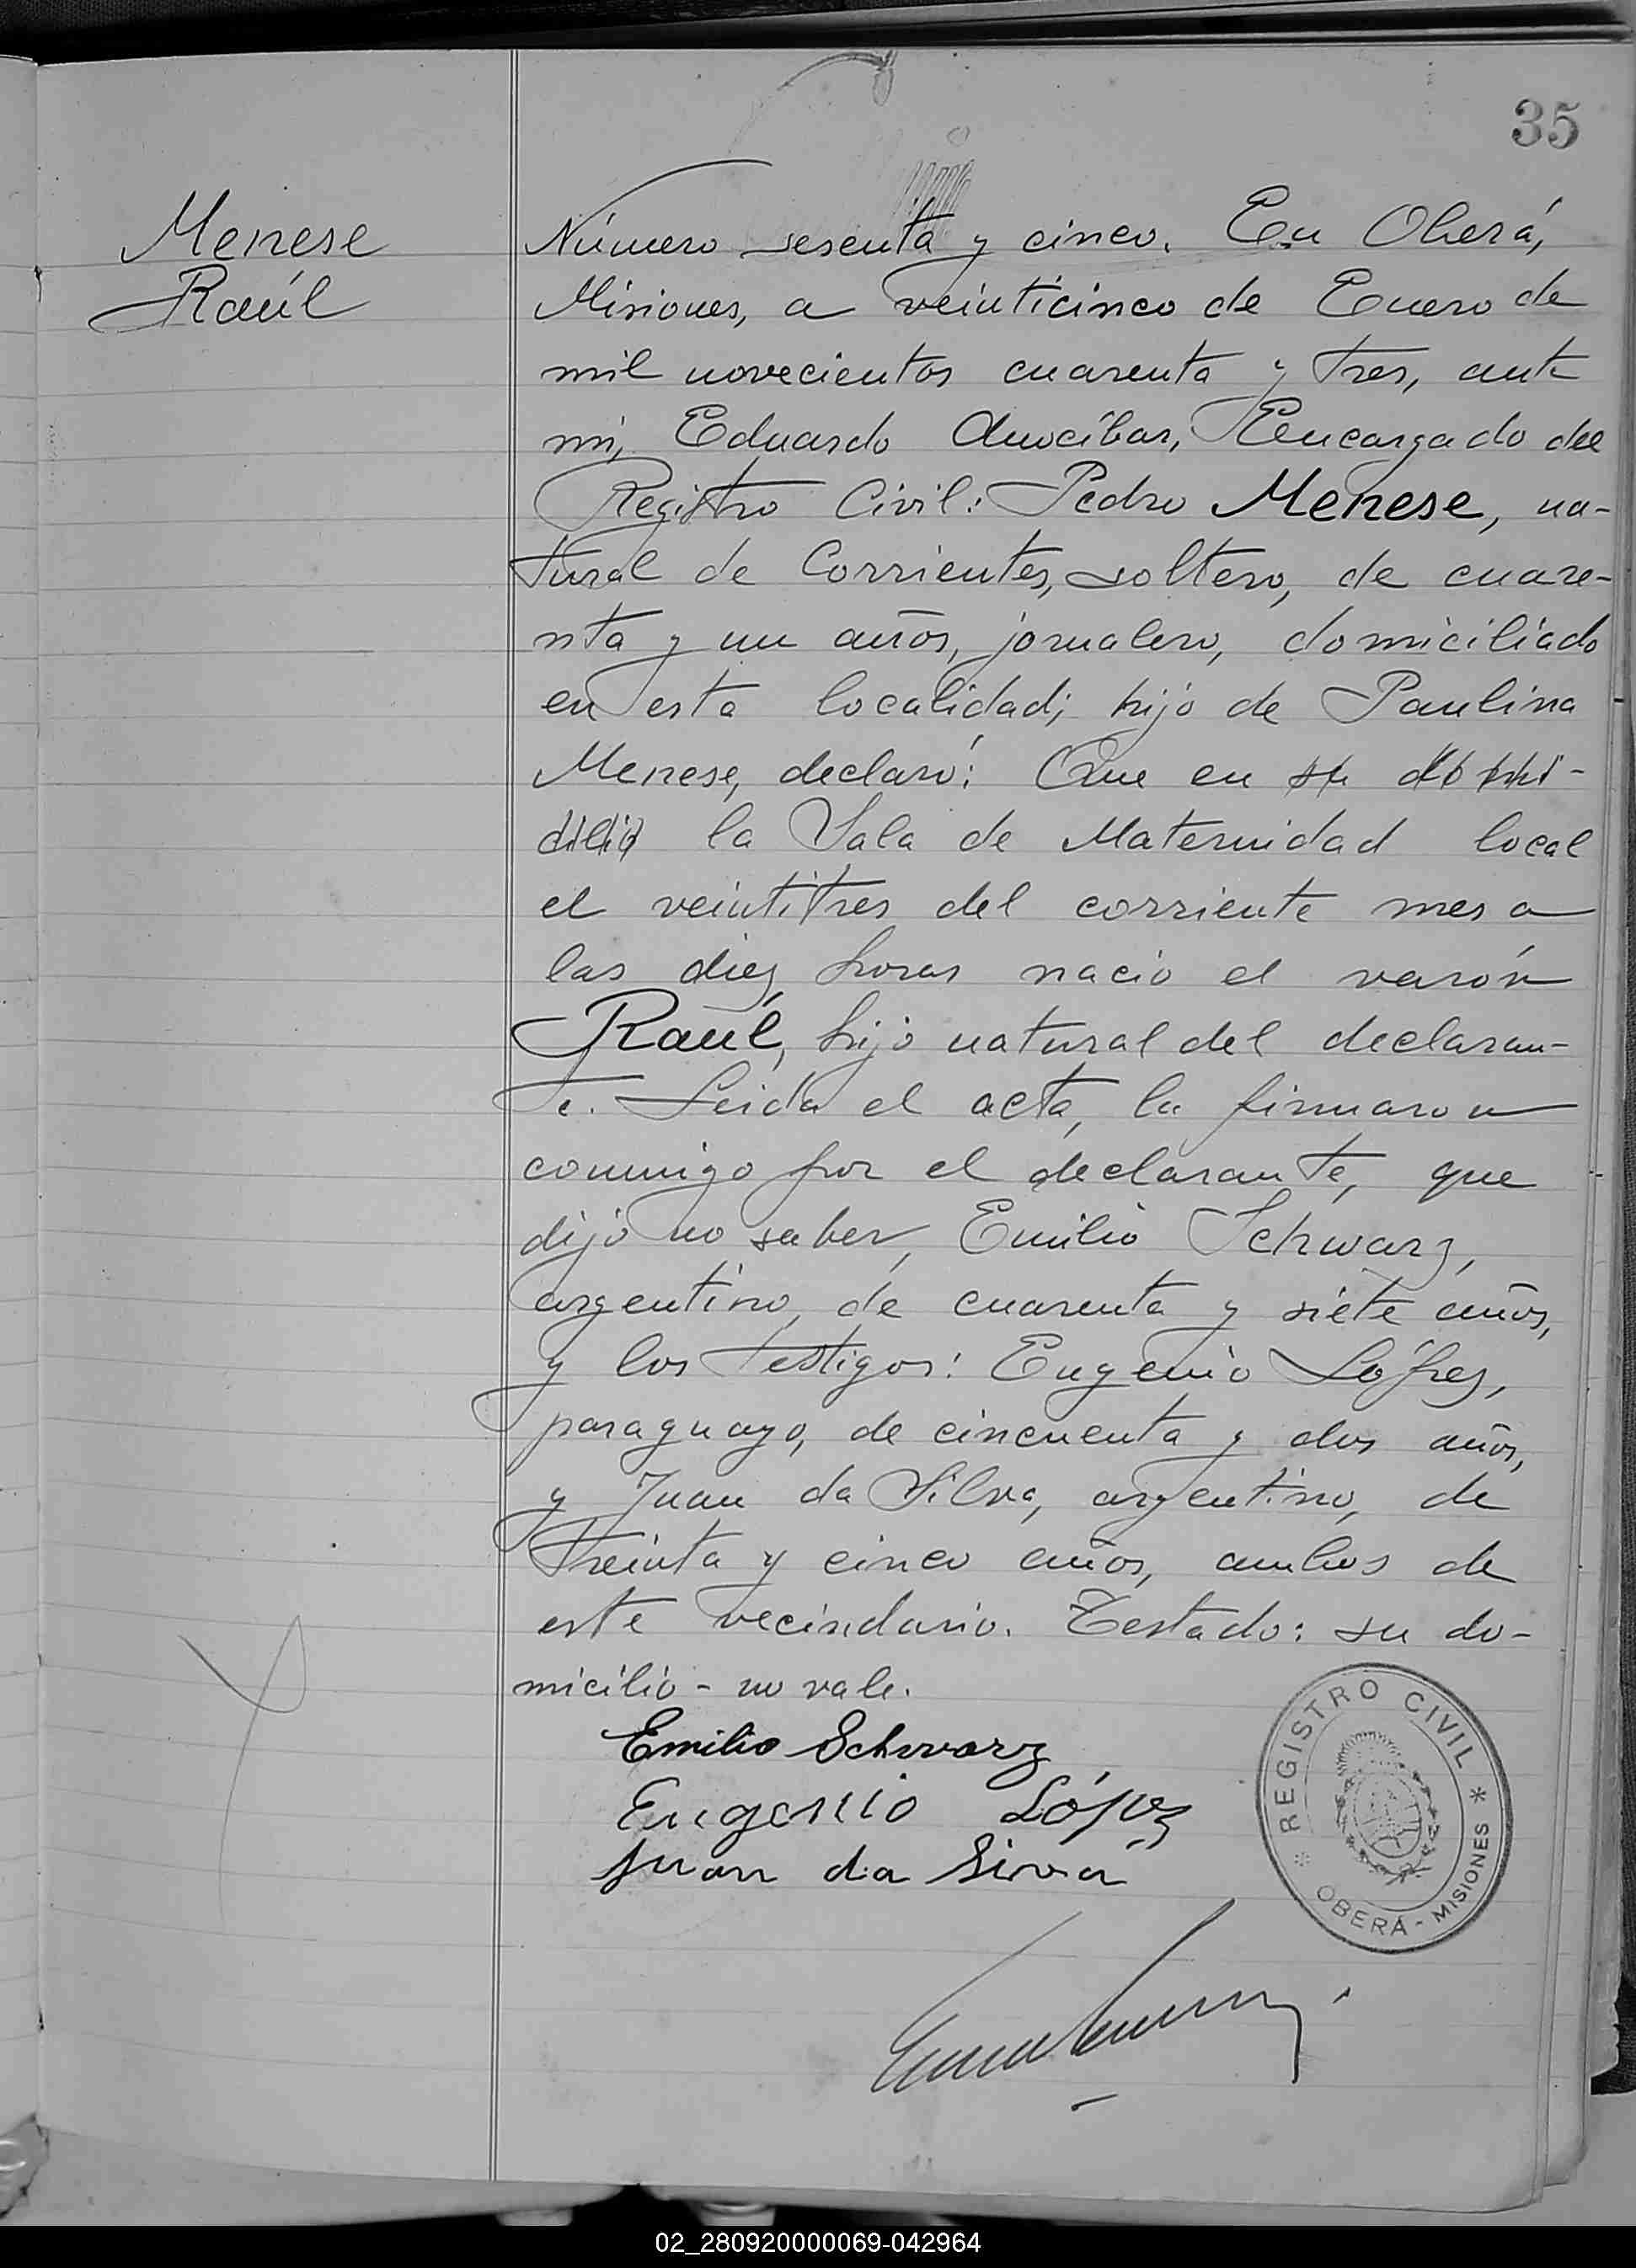 35
Menese
Raúl
Número sesenta y cinco. En Oberá,
Misiones, a veinticinco de Enero de
mil novecientos cuarenta y tres, ante
mi, Eduardo Amocíbar, Encargado del
Registro Civil: Pedro Menese, na-
tural de Corrientes, soltero, de cuare-
nta y un años, jornalero, domiciliado
en esta localidad; hijo de Paulina
Menese, declaró: Que en su domi-
cilio la Sala de Maternidad local
el veintitres del corriente mes a
las diez horas nació el varón
Raúl, hijo natural del declaran-
te. Leida el acta, la firmaron
conmigo por el declarante, que
dijo no saber, Emilio Schwarz,
argentino, de cuarenta y siete años,
y los testigos: Eugenio López,
paraguayo, de cincuenta y dos años,
y Juan da Silva, argentino, de
treinta y cinco años, ambos de
este vecindario. Testado: su do-
micilio - no vale.
Emilio Schwarz
Eugenio López
Juan da Sirva
REGISTRO CIVIL
OBERÁ - MISIONES
02_280920000069-042964